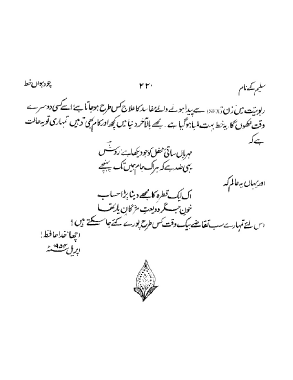 سلیم کے نام ۲۲۰ چودہواں خط
ربوبیت میں زن (SEX) سے پیدا ہونے والے مفاسد کا علاج کس طرح ہو جاتا ہے اسے کسی دوسرے
وقت لکھوں گا یہ خط بہت لمبا ہو گیا ہے۔ مجھے بالآخر دنیا میں کچھ اور کام بھی تو ہیں تمہاری تو یہ حالت
ہے کہ
مہرباں ساقیٔ محفل کو جو دیکھا ہے روشؔ
یہی ضد ہے کہ ہر اک جام ہمیں تک پہنچے
اور یہاں یہ عالم کہ
اک ایک قطرہ کا مجھے دینا پڑا حساب
خونِ جگر ودیعتِ مژگانِ یار تھا
اس لئے تمہارے سب تقاضے بیک وقت کس طرح پورے کئے جا سکتے ہیں؟
اچھا خدا حافظ!
اپریل ۱۹۵۳ء